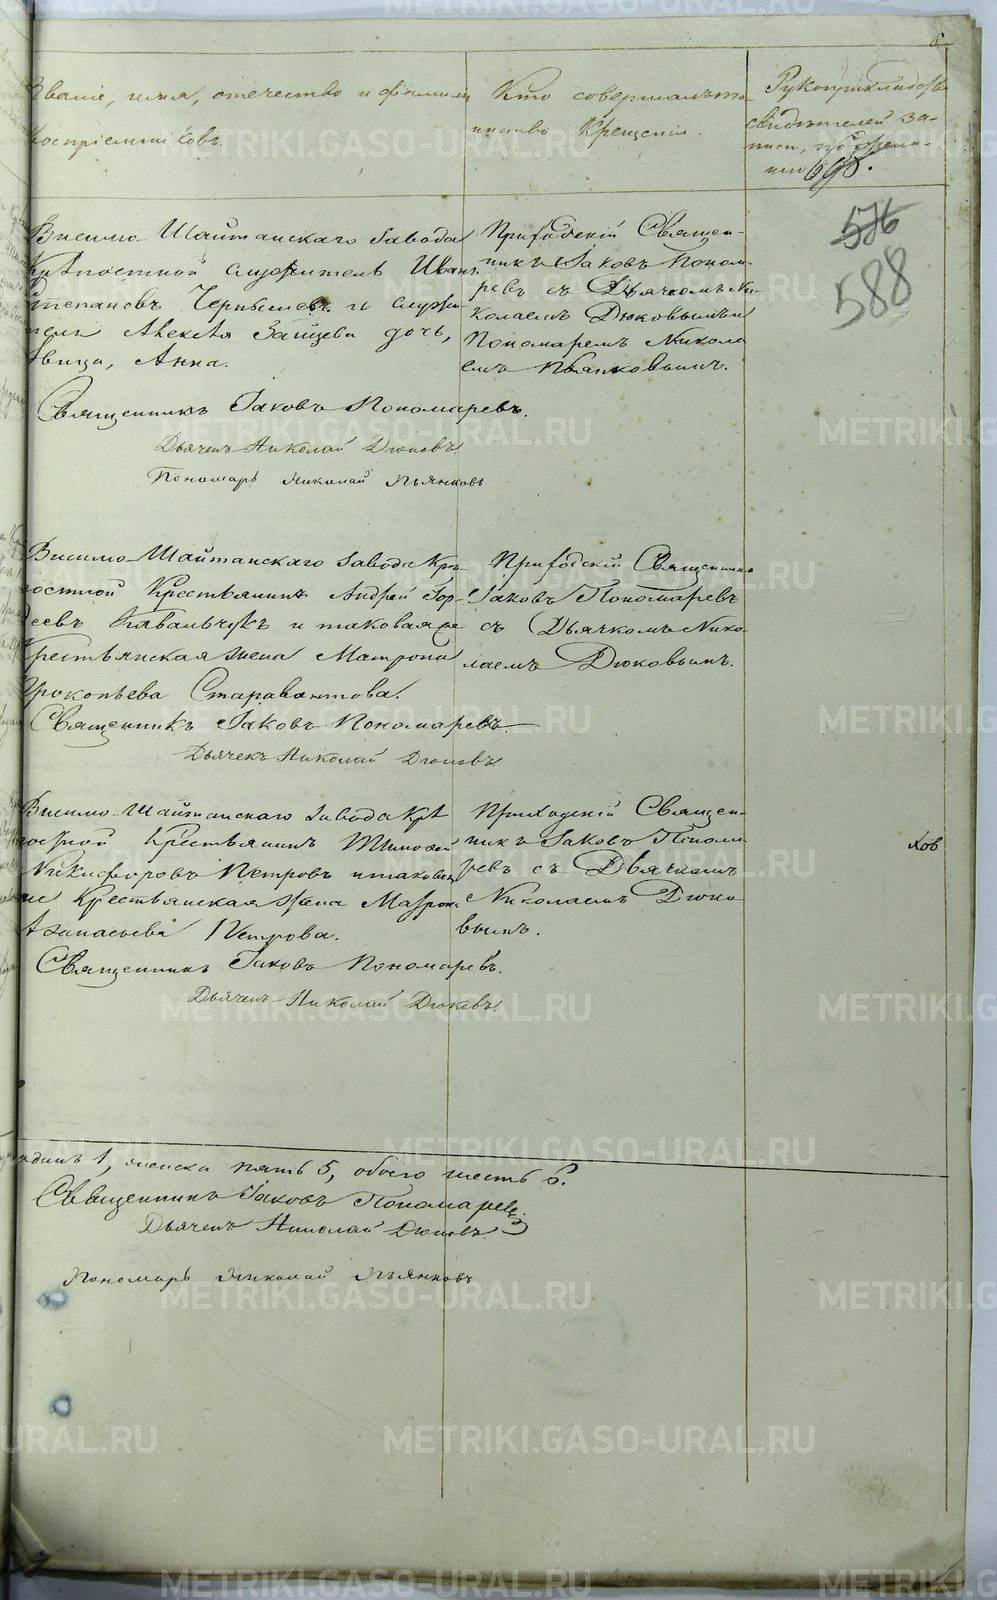 Званіе, имя, отечество и фамилія
воспріемниковъ.
Кто совершалъ та-
инство Крещенія.
Рукоприкладство
свидѣтелей за-
писи, по жела-
нію
576
588
Висимо-Шайтанскаго Завода
Крѣпостной служитель Иванъ
Степановъ Чернышевъ и служи-
теля Алексѣя Зайцева дочь,
дѣвица, Анна.
Приходскій Священ-
никъ Іаковъ Понома-
ревъ съ Дьячкомъ Ни-
колаемъ Дюковымъ и
Пономаремъ Никола
емъ Пьянковымъ.
Священникъ Іаковъ Пономаревъ.
Дьячекъ Николай Дюковъ
Пономарь Николай Пьянковъ
Висимо-Шайтанскаго Завода Крѣ-
постной Крестьянинъ Андрей Гор-
деевъ и таковая же
Крестьянская жена Матрона
Прокопьева
Приходскій Священникъ
Іаковъ Пономаревъ
съ Дьячкомъ Нико-
лаемъ Дюковымъ.
Священникъ Іаковъ Пономаревъ.
Дьячекъ Николай Дюковъ
Висимо-Шайтанскаго Завода Крѣ
постной Крестьянинъ Тимофей
Никифоровъ Петровъ и таковая
же Крестьянская жена
Афанасьева Петрова.
Приходскій Священ-
никъ Іаковъ Понома
ревъ съ Дьячкомъ
Николаемъ Дюко
вымъ.
ховъ
Священникъ Іаковъ Пономаревъ.
Дьячекъ Николай Дюковъ.
одинъ 1, женска пять 5, обоего шесть 6.
Священникъ Іаковъ Пономаревъ.
Дьячекъ Николай Дюковъ.
Пономарь Николай Пьянковъ
METRIKI.GASO-URAL.RU